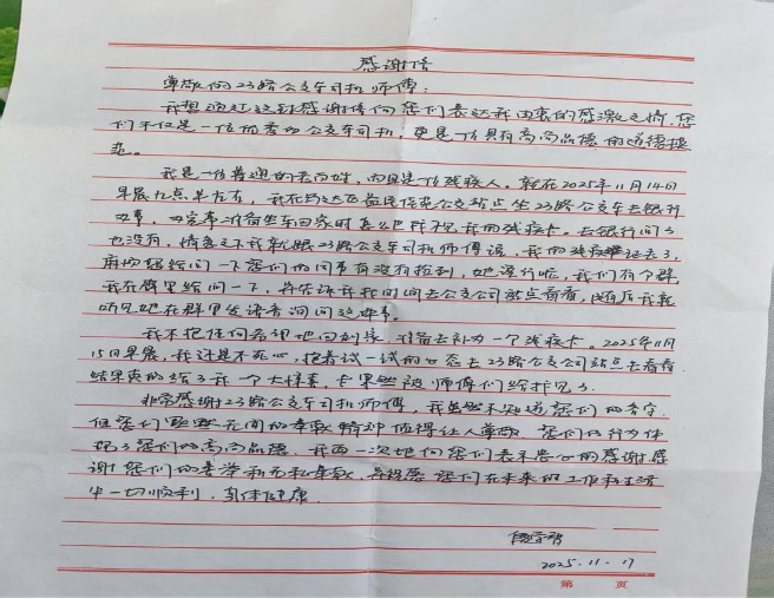 感谢信
尊敬的23路公交车司机师傅:
我想通过这封感谢信向您们表达我由衷的感激之情,您
们不仅是一位优秀的公交车司机,更是一位具有高尚品德的道德模
范。
我是一位普通的老百姓,而且是一位残疾人。就在2025年11月14日
早晨九点半左右,我在益民公交站点坐23路公交车去银行
办事,办完事准备坐车回家时怎么也找不见我的残疾卡。去银行问了
也没有,情急之下我就跟23路公交车司机师傅说,我的残疾证丢了,
麻烦您给问一下您们的同事有没有捡到,她说行啦,我们有个群,
我在群里给问一下,并告诉我我时间去公交公司站点看看,随后我就
听见她在群里发语音询问这件事。
我不抱任何希望地回到家,准备去补办一个残疾卡。2025年11月
15日早晨,我还是不死心,抱着试一试的心态去23路公交公司站点去看看
结果真的给了我一个大惊喜,卡果然被师傅们给找见了。
非常感谢23路公交车司机师傅,我虽然不知道您们的名字
但您们无闻的奉献精神值得让人尊敬,您们的行为体
现了您们的高尚品德,我再一次地向您们表示衷心的感谢,感
谢您们的善举和无私奉献,并祝愿您们在未来的工作和生活
中一切顺利,身体健康
2025.11.17
第 页